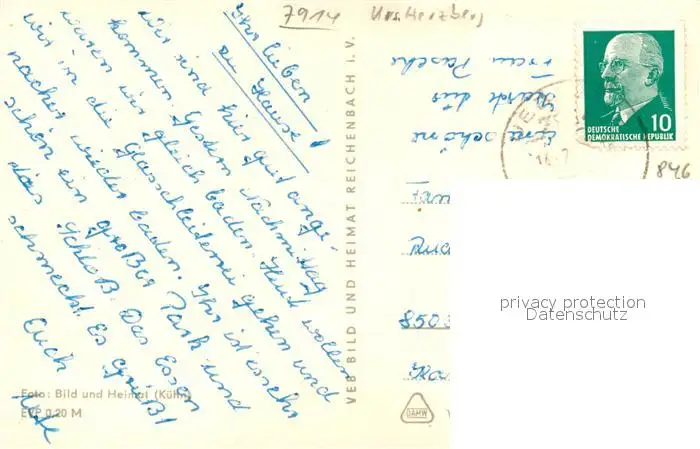 7914 Krs. Herzberg
Ihr lieben
zu Hause!
Wir sind hier gut ange-
kommen. Gestern Nachmittag
waren wir gleich baden. Heut wollen
wir in die Glasschleiferei gehen und
nacher wieder baden. Ihr ist es sehr
schön ein großer Park und
das Schloß. Das Essen
schmeckt. Es grüßt
Euch
Ute
Foto: Bild und Heimat (Kühn)
EVP 0.20 M
VEB BILD UND HEIMAT REICHENBACH I. V.
Frau Pasche
eine schöne
DEUTSCHE
DEMOKRATISCHE REPUBLIK
10
846
Fam
850
DAMW
privacy protection
Datenschutz